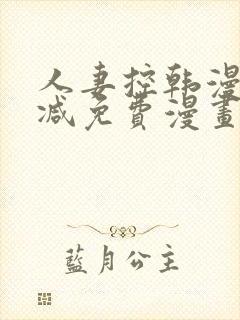 人妻控韩漫
减免費漫畫
藍月公主